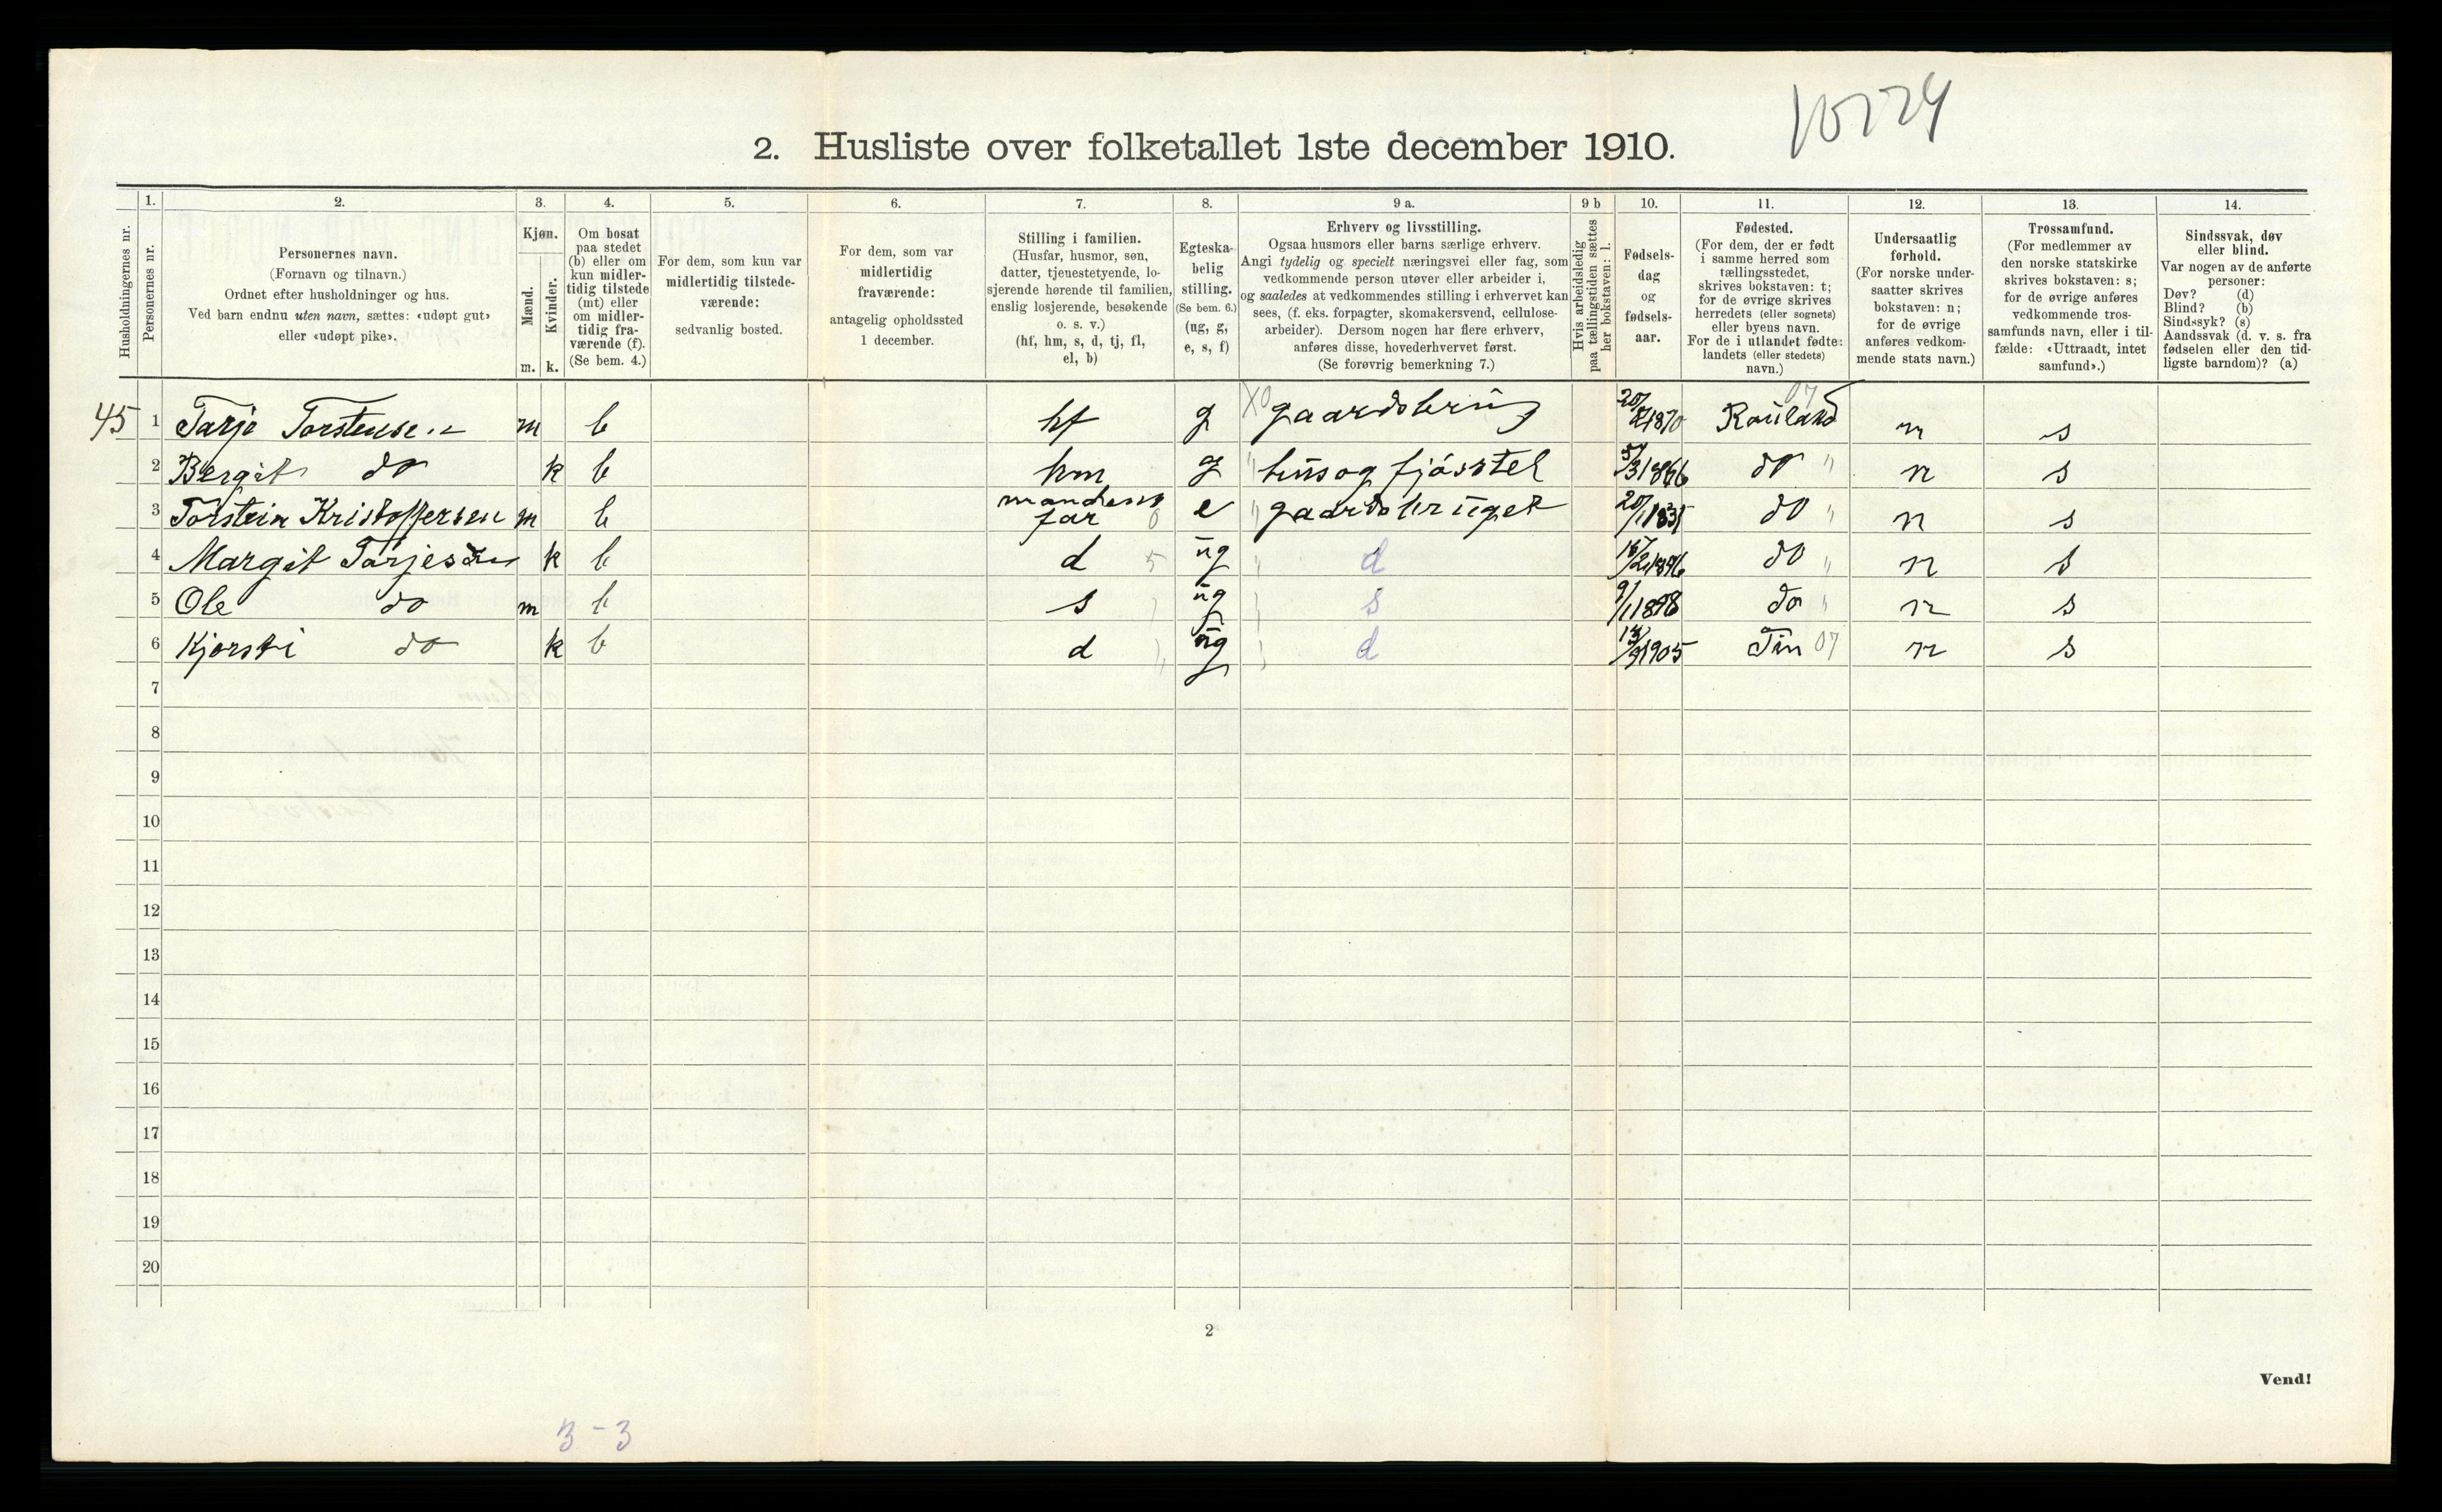 10224
2. Husliste over folketallet 1ste december 1910.
Husholdningernes nr.
1. Personernes nr.
2. Personernes navn.
(Fornavn og tilnavn.)
Ordnet efter husholdninger og hus.
Ved barn endnu uten navn, sættes: «udøpt gut»
eller «udøpt pike».
3. Kjøn.
Mænd. m.
Kvinder. k.
4. Om bosat
paa stedet
(b) eller om
kun midler-
tidig tilstede
(mt) eller
om midler-
tidig fra-
værende (f).
(Se bem. 4.)
5. For dem, som kun var
midlertidig tilstede-
værende:
sedvanlig bosted.
6. For dem, som var
midlertidig
fraværende:
antagelig opholdssted
1 december.
7. Stilling i familien.
(Husfar, husmor, søn,
datter, tjenestetyende, lo-
sjerende hørende til familien,
enslig losjerende, besøkende
o. s. v.)
(hf, hm, s, d, tj, fl,
el, b)
8. Egteska-
belig
stilling.
(Se bem. 6.)
(ug, g,
e, s, f)
9 a. Erhverv og livsstilling.
Ogsaa husmors eller barns særlige erhverv.
Angi tydelig og specielt næringsvei eller fag, som
vedkommende person utøver eller arbeider i,
og saaledes at vedkommendes stilling i erhvervet kan
sees, (f. eks. forpagter, skomakersvend, cellulose-
arbeider). Dersom nogen har flere erhverv,
anføres disse, hovederhvervet først.
(Se forøvrig bemerkning 7.)
9 b Hvis arbeidsledig
paa tællingstiden sættes
her bokstaven: l.
10. Fødsels-
dag
og
fødsels-
aar.
11. Fødested.
(For dem, der er født
i samme herred som
tællingsstedet,
skrives bokstaven: t;
for de øvrige skrives
herredets (eller sognets)
eller byens navn.
For de i utlandet fødte:
landets (eller stedets)
navn.)
12. Undersaatlig
forhold.
(For norske under-
saatter skrives
bokstaven: n;
for de øvrige
anføres vedkom-
mende stats navn.)
13. Trossamfund.
(For medlemmer av
den norske statskirke
skrives bokstaven: s;
for de øvrige anføres
vedkommende tros-
samfunds navn, eller i til-
fælde: «Uttraadt, intet
samfund».)
14. Sindssvak, døv
eller blind.
Var nogen av de anførte
personer:
Døv? (d)
Blind? (b)
Sindssyk? (s)
Aandssvak (d. v. s. fra
fødselen eller den tid-
ligste barndom)? (a)
45 1 Tarje Torstensen m b hf g X0 gaardsbrug 20/ 1870 07 Rauland n s
2 Bergit do k b hm g " hus og fjøsstel 5/3 1866 do " n s
3 Torstein Kristoffersen m b mandens far 0 e " gaardsbruget 20/1 1835 do " n s
4 Margit Tarjesdtr k b d 5 ug " d 15/2 1896 do " n s
5 Ole do m b s " ug " s 9/1 1898 do " n s
6 Kjersti do k b d " ug " d 13/9 1905 Tin 07 n s
7
8
9
10
11
12
13
14
15
16
17
18
19
20
2
Vend!
3 - 3